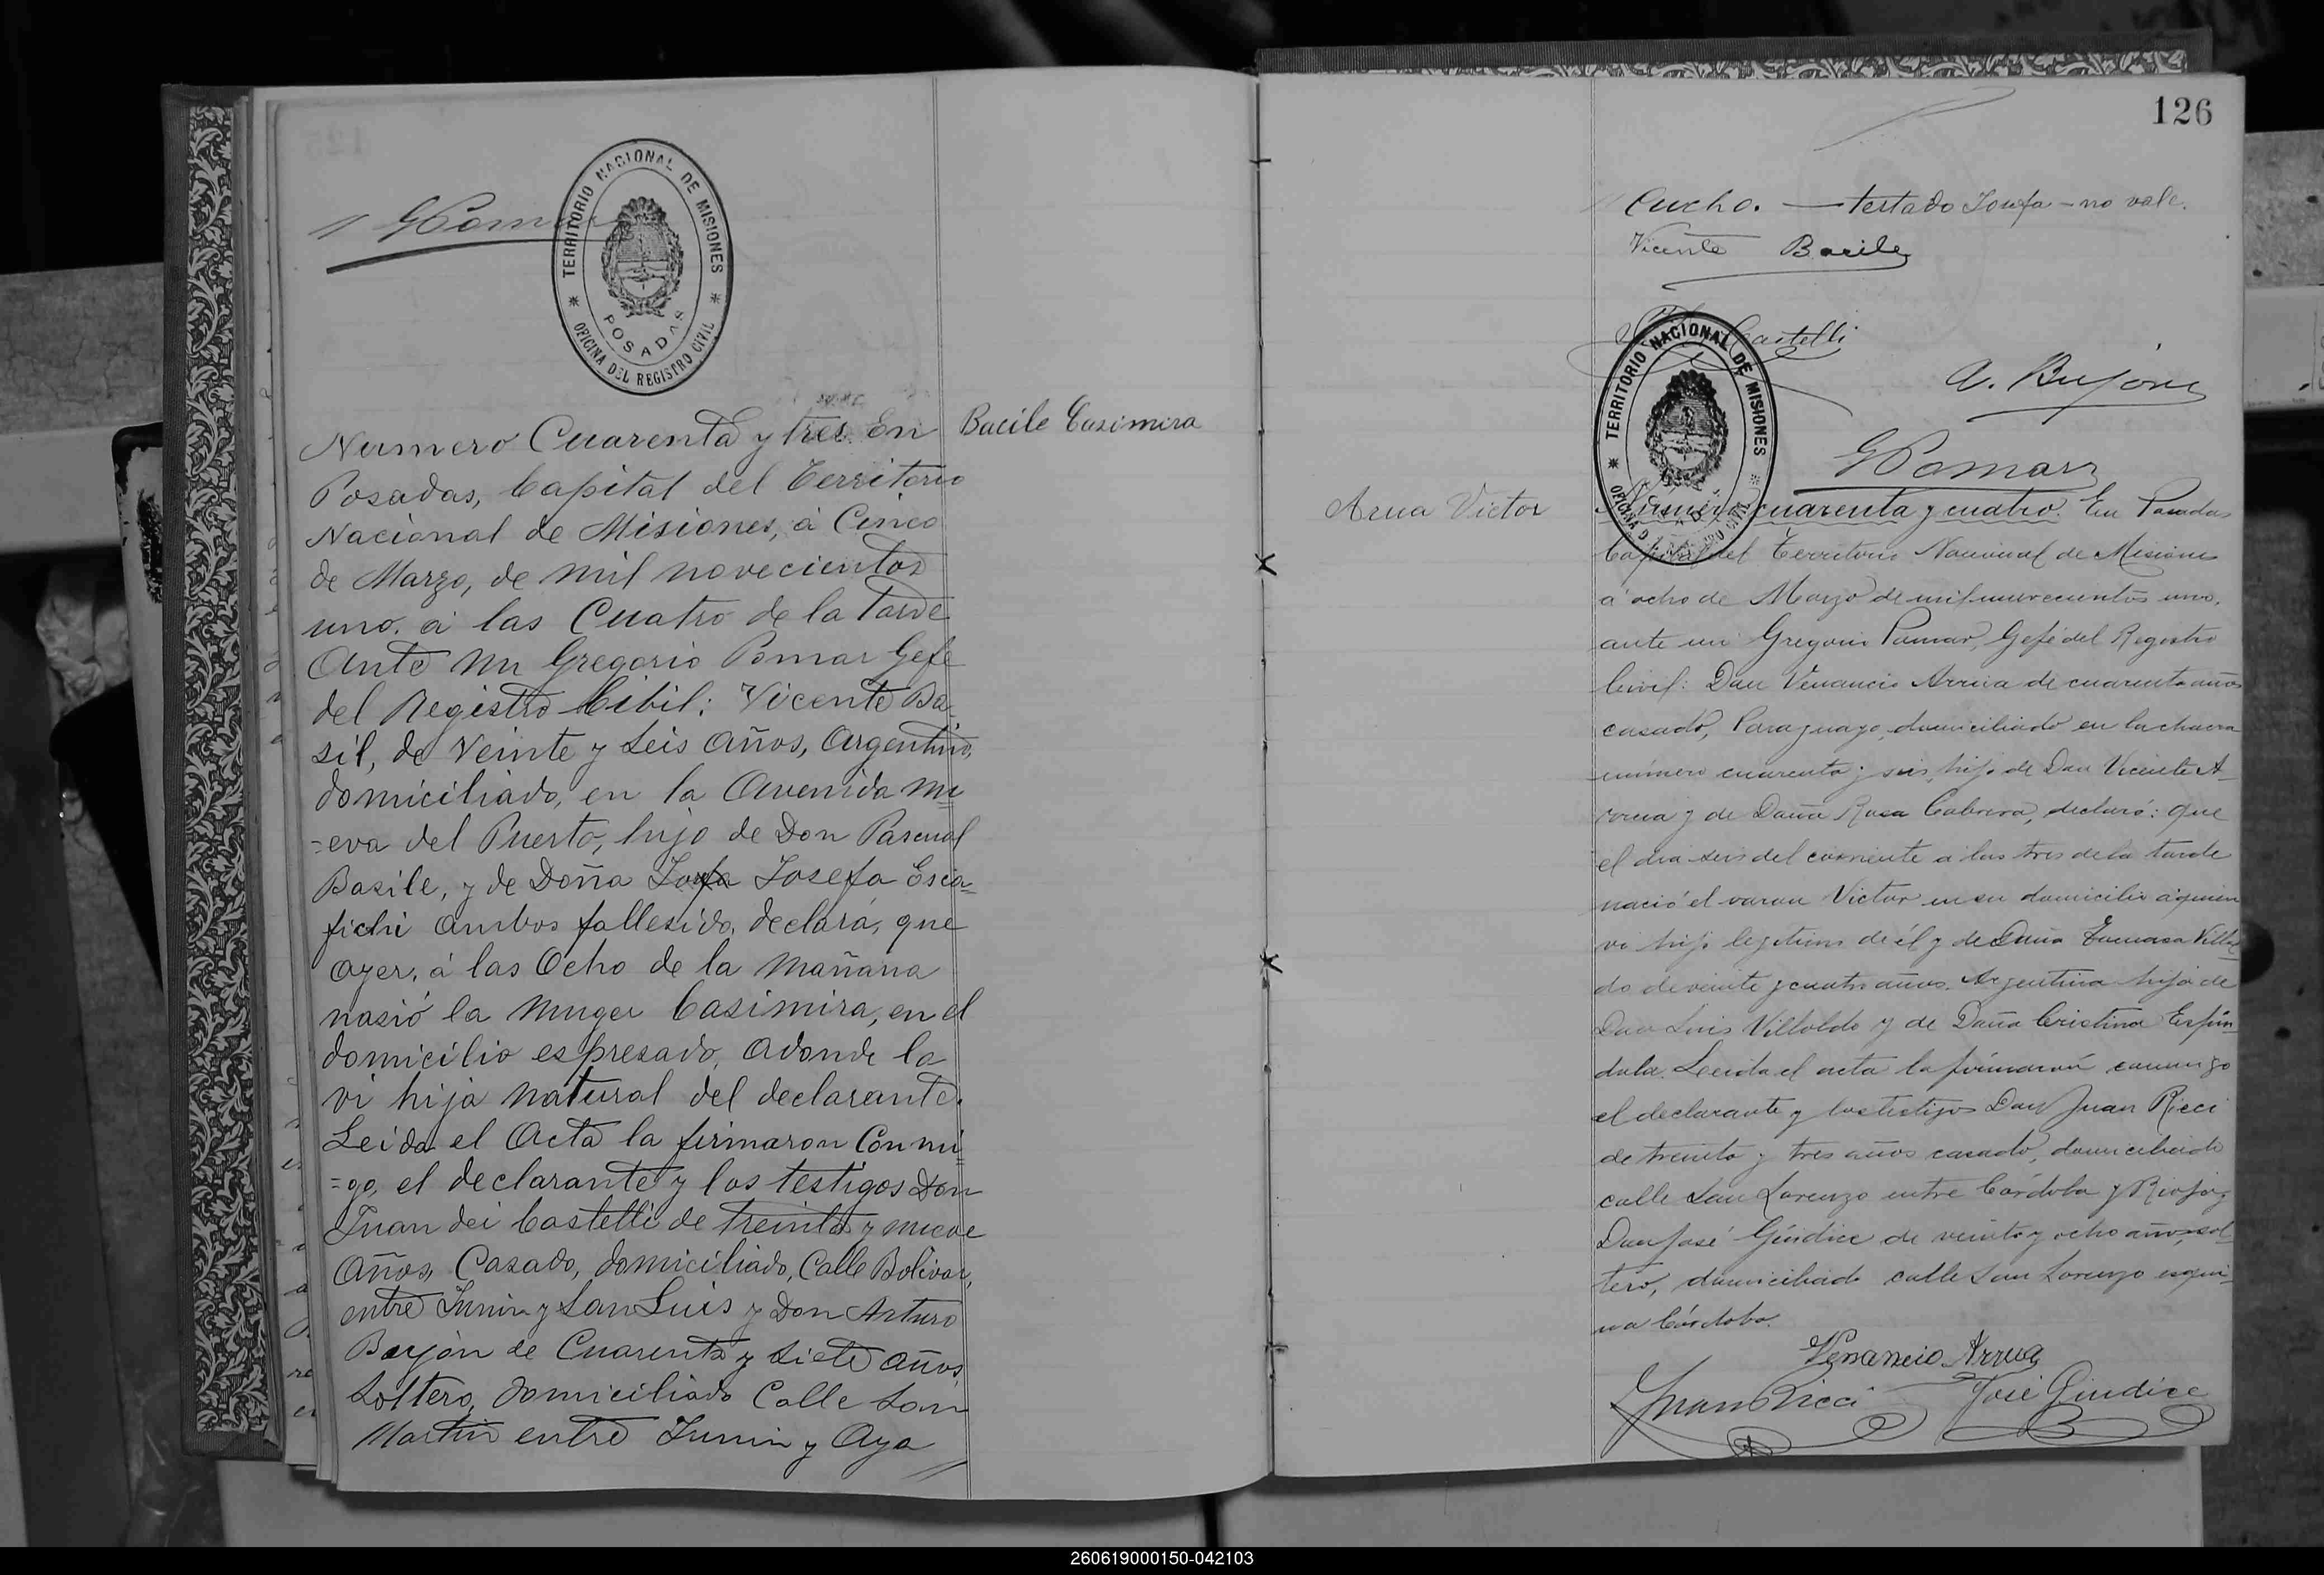 G Pomar
TERRITORIO NACIONAL DE MISIONES
POSADAS
OFICINA DEL REGISTRO CIVIL
Bacile Casimira
Numero Cuarenta y tres. En
Posadas, Capital del Territorio
Nacional de Misiones, á Cinco
de Marzo, de mil novecientos
uno. á las Cuatro de la Tarde
Ante mi Gregorio Pomar Gefe
del Registro Cibil: Vicente Ba-
sil, de Veinte y Seis Años, Argentino,
domiciliado, en la Avenida Nu
=eva del Puerto, hijo de Don Pascual
Basile, y de Doña Josefa Escia=
fichi Ambos fallesido, declará, que
ayer, á las Ocho de la Mañana
nasió la Muger Casimira, en el
domicilio espresado, Adonde la
vi hija natural del declarante.
Leida el Acta la firmaron Conmi
=go, el declarante y los testigos Don
Juan dei Castelli de treinta y nueve
Años, Casado, domiciliado, Calle Bolivar,
entre Junin y San Luis y Don Arturo
Buyón de Cuarenta y Siete Años,
Soltero, domiciliado Calle San
Martin entre Junin y Aya
126
cucho. — testado Josefa — no vale.
Vicente Basile
Castelli
TERRITORIO NACIONAL DE MISIONES
OFICINA CIVIL
A. Bujone
G Pomar
Arua Victor
Número cuarenta y cuatro. En Posadas
Capital del Territorio Nacional de Misiones
á ocho de Marzo de mil novecientos uno,
ante mi Gregorio Pomar, Gefe del Registro
Civil: Don Venancio Arrua de cuarenta años
casado, Paraguayo, domiciliado en la chacra
número cuarenta y seis, hijo de Don Vicente A-
rrua y de Doña Rosa Cabrera, declaró: que
el dia seis del corriente a las tres de la tarde
nació el varon Victor en su domicilio á quien
vi hijo legitimo de él y de Doña Villol
do de veinte y cuatro años, Argentina hija de
Don Luis Villoldo y de Doña Cristina Espín-
dula. Leida el acta la firmaron conmigo
el declarante y los testigos Don Juan Ricci
de treinta y tres años casado, domiciliado
calle San Lorenzo entre Córdoba y Rioja y
Don José Giudice de veinte y ocho años, sol-
tero, domiciliado calle San Lorenzo esqui-
na Córdoba.
Venancio Arrua
Juan Ricci José Giudice
260619000150-042103